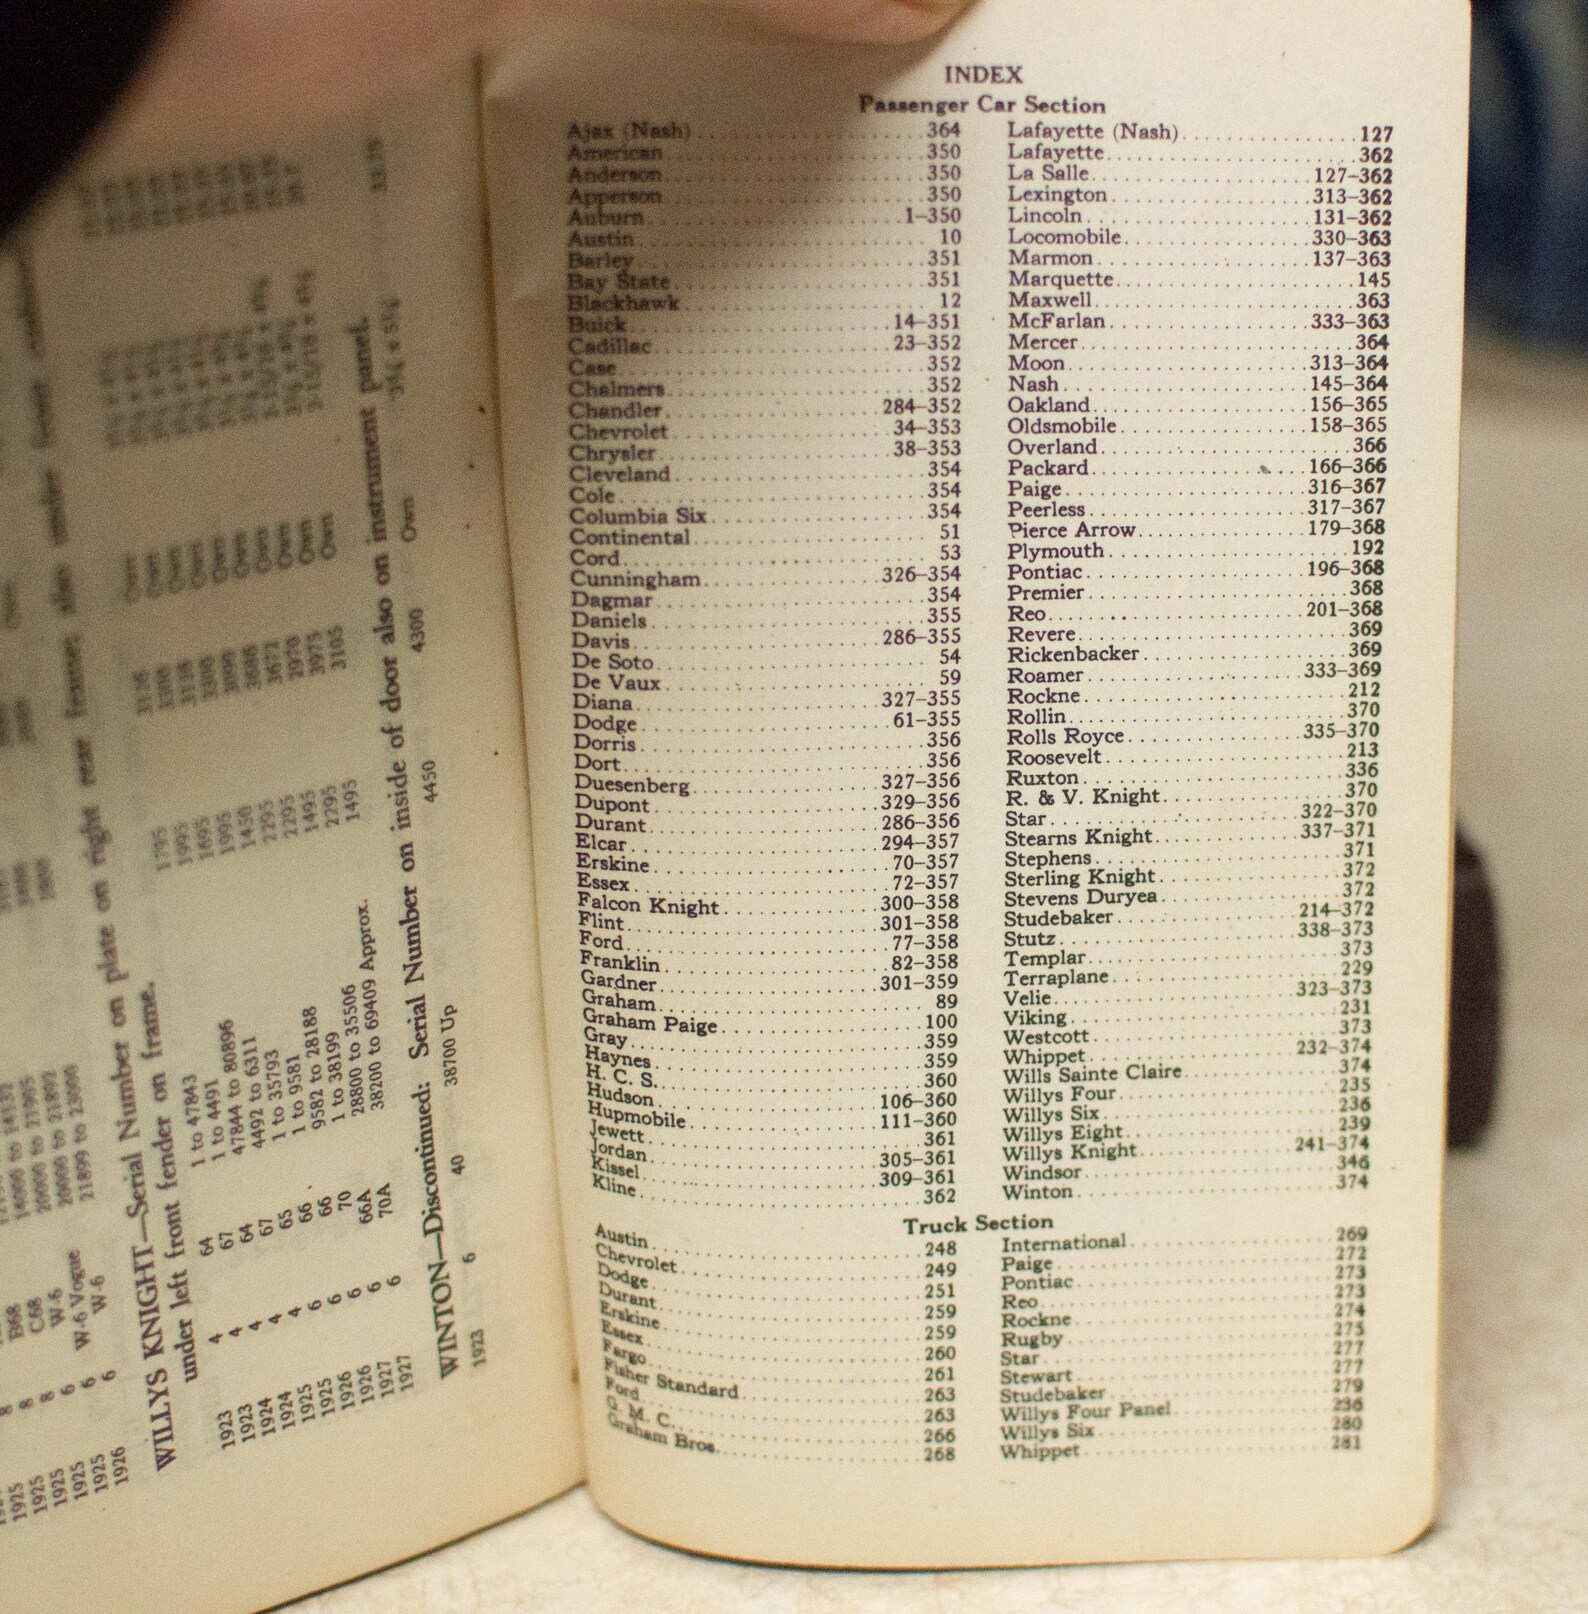 WILLYS KNIGHT—Serial Number on plate on right rear frame; also under
under left front fender on frame.
1923 4 64 1 to 47843 1795 Own
1923 4 67 1 to 4491 1995 Own
1924 4 64 47844 to 80896 1695 Own
1924 4 67 4492 to 6311 1995 Own
1925 4 65 1 to 35793 1450 Own
1925 6 66 1 to 9581 2295 Own
1926 6 66 9582 to 28188 2295 Own
1926 6 70 1 to 38199 1495 2970 Own
1927 6 66A 28800 to 35506 2295 3975 Own
1927 6 70A 38200 to 69409 Approx. 1495 3105 Own
WINTON—Discontinued: Serial Number on inside of door also on instrument panel.
1923 6 40 38700 Up 4450 4300 Own
INDEX
Passenger Car Section
Ajax (Nash) 364
American 350
Anderson 350
Apperson 350
Auburn 1–350
Austin 10
Barley 351
Bay State 351
Blackhawk 12
Buick 14–351
Cadillac 23–352
Case 352
Chalmers 352
Chandler 284–352
Chevrolet 34–353
Chrysler 38–353
Cleveland 354
Cole 354
Columbia Six 354
Continental 51
Cord 53
Cunningham 326–354
Dagmar 354
Daniels 355
Davis 286–355
De Soto 54
De Vaux 59
Diana 327–355
Dodge 61–355
Dorris 356
Dort 356
Duesenberg 327–356
Dupont 329–356
Durant 286–356
Elcar 294–357
Erskine 70–357
Essex 72–357
Falcon Knight 300–358
Flint 301–358
Ford 77–358
Franklin 82–358
Gardner 301–359
Graham 89
Graham Paige 100
Gray 359
Haynes 359
H. C. S. 360
Hudson 106–360
Hupmobile 111–360
Jewett 361
Jordan 305–361
Kissel 309–361
Kline 362
Lafayette (Nash) 127
Lafayette 362
La Salle 127–362
Lexington 313–362
Lincoln 131–362
Locomobile 330–363
Marmon 137–363
Marquette 145
Maxwell 363
McFarlan 333–363
Mercer 364
Moon 313–364
Nash 145–364
Oakland 156–365
Oldsmobile 158–365
Overland 366
Packard 166–366
Paige 316–367
Peerless 317–367
Pierce Arrow 179–368
Plymouth 192
Pontiac 196–368
Premier 368
Reo 201–368
Revere 369
Rickenbacker 369
Roamer 333–369
Rockne 212
Rollin 370
Rolls Royce 335–370
Roosevelt 213
Ruxton 336
R. & V. Knight 370
Star 322–370
Stearns Knight 337–371
Stephens 371
Sterling Knight 372
Stevens Duryea 372
Studebaker 214–372
Stutz 338–373
Templar 373
Terraplane 229
Velie 323–373
Viking 231
Westcott 373
Whippet 232–374
Wills Sainte Claire 374
Willys Four 235
Willys Six 236
Willys Eight 239
Willys Knight 241–374
Windsor 346
Winton 374
Truck Section
Austin 248
Chevrolet 249
Dodge 251
Durant 259
Erskine 259
Essex 260
Fargo 261
Fisher Standard 263
Ford 263
G. M. C. 266
Graham Bros. 268
International 269
Paige 272
Pontiac 273
Reo 273
Rockne 274
Rugby 275
Star 277
Stewart 277
Studebaker 279
Willys Four Panel 236
Willys Six 280
Whippet 281